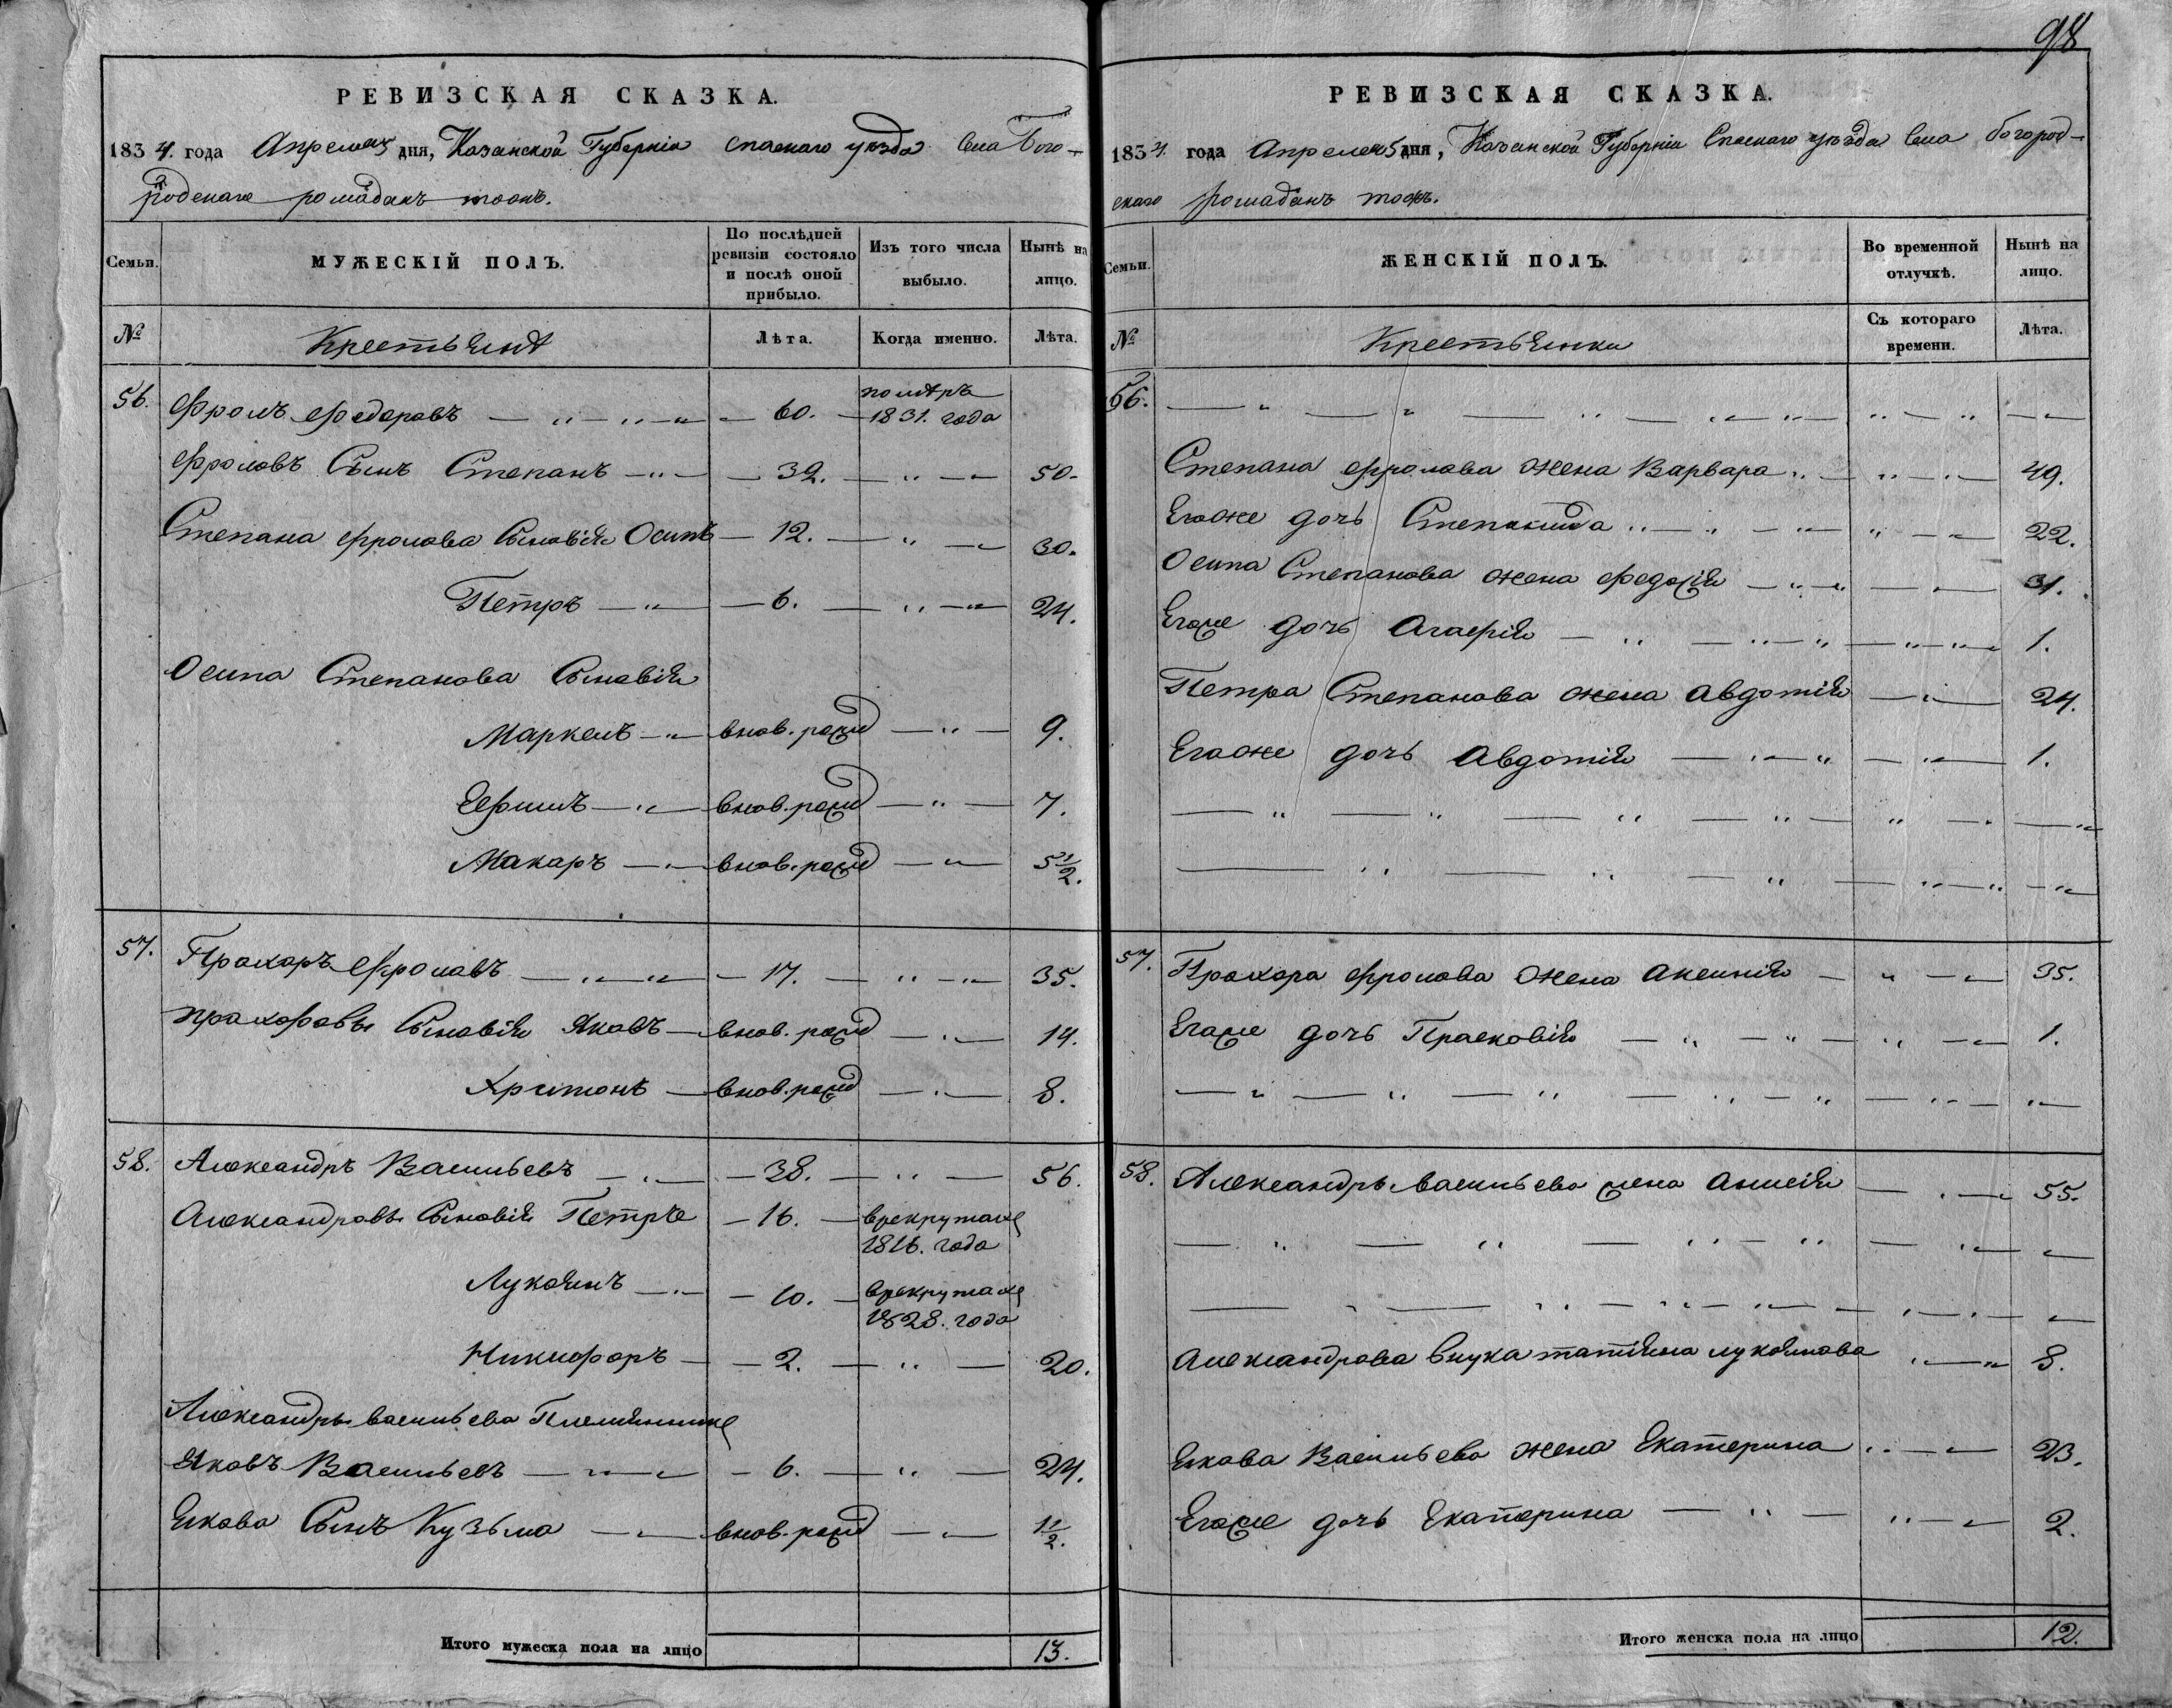 98
РЕВИЗСКАЯ СКАЗКА.
1834. года Апреля 25 дня, Казанской Губернiи спаскаго уезда Села Бого-
родскаго ромадан тожъ.
Семьи.
МУЖЕСКІЙ ПОЛЪ.
По послѣдней ревизіи состояло и послѣ оной прибыло.
Изъ того числа выбыло.
Нынѣ на лицо.
№
Крестьяне
Лѣта.
Когда именно.
Лѣта.
56. Фролъ Федоровъ — 60. — помѣръ 1831. года
Фроловъ Сынъ Степанъ — 32. — 50.
Степана Фролова Сыновiя Осипъ — 12. — 30.
Петръ — 6. — 24.
Осипа Степанова Сыновiя
Маркелъ — внов. рожд — 9.
Ефимъ — внов. рожд — 7.
Макаръ — внов. рожд — 5 1/2.
57. Прохоръ Фроловъ — 17. — 35.
Прохоровы Сыновiя Яковъ — внов. рожд — 14.
Хритонъ — внов. рожд — 8.
58. Александръ Васильевъ — 38. — 56.
Александровы Сыновiя Петръ — 16. — врекрутахъ 1816. года
Лукоянъ — 10. — врекрутахъ 1828. года
Никифоръ — 2. — 20.
Александры васильева Племянники
Яковъ Васильевъ — 6. — 24.
Якова Сынъ Кузьма — внов. рожд — 1 1/2.
Итого мужеска пола на лицо 13.
РЕВИЗСКАЯ СКАЗКА.
1834. года Апреля 25 дня, Казанской Губернiи Спаскаго уезда Села богород-
скаго ромаданъ тожъ.
Семьи.
ЖЕНСКІЙ ПОЛЪ.
Во временной отлучкѣ.
Нынѣ на лицо.
№
Крестьянки
Съ котораго времени.
Лѣта.
56.
Степана Фролова жена Варвара — 49.
Егоже дочь Степанида — 22.
Осипа Степанова жена Федосiя — 31.
Егоже дочь Агафiя — 1.
Петра Степанова жена Авдотiя — 24.
Егоже дочь Авдотiя — 1.
57. Прохора Фролова жена Аксинiя — 35.
Егоже дочь Прасковiя — 1.
58. Александры васильева жена — 55.
Александрова внука татiяна лукоянова — 8.
Якова Васильева жена Екатерина — 23.
Егоже дочь Екатерина — 2.
Итого женска пола на лицо 12.